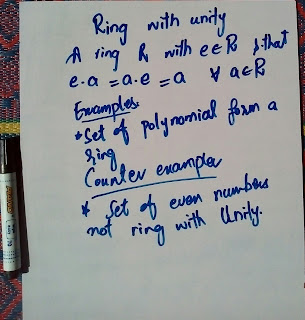 Ring with unity
A ring R with e∈R s.that
e.a = a.e = a ∀ a∈R
Examples
*Set of polynomial form a
ring
Counter examples
* Set of even numbers
not ring with Unity.